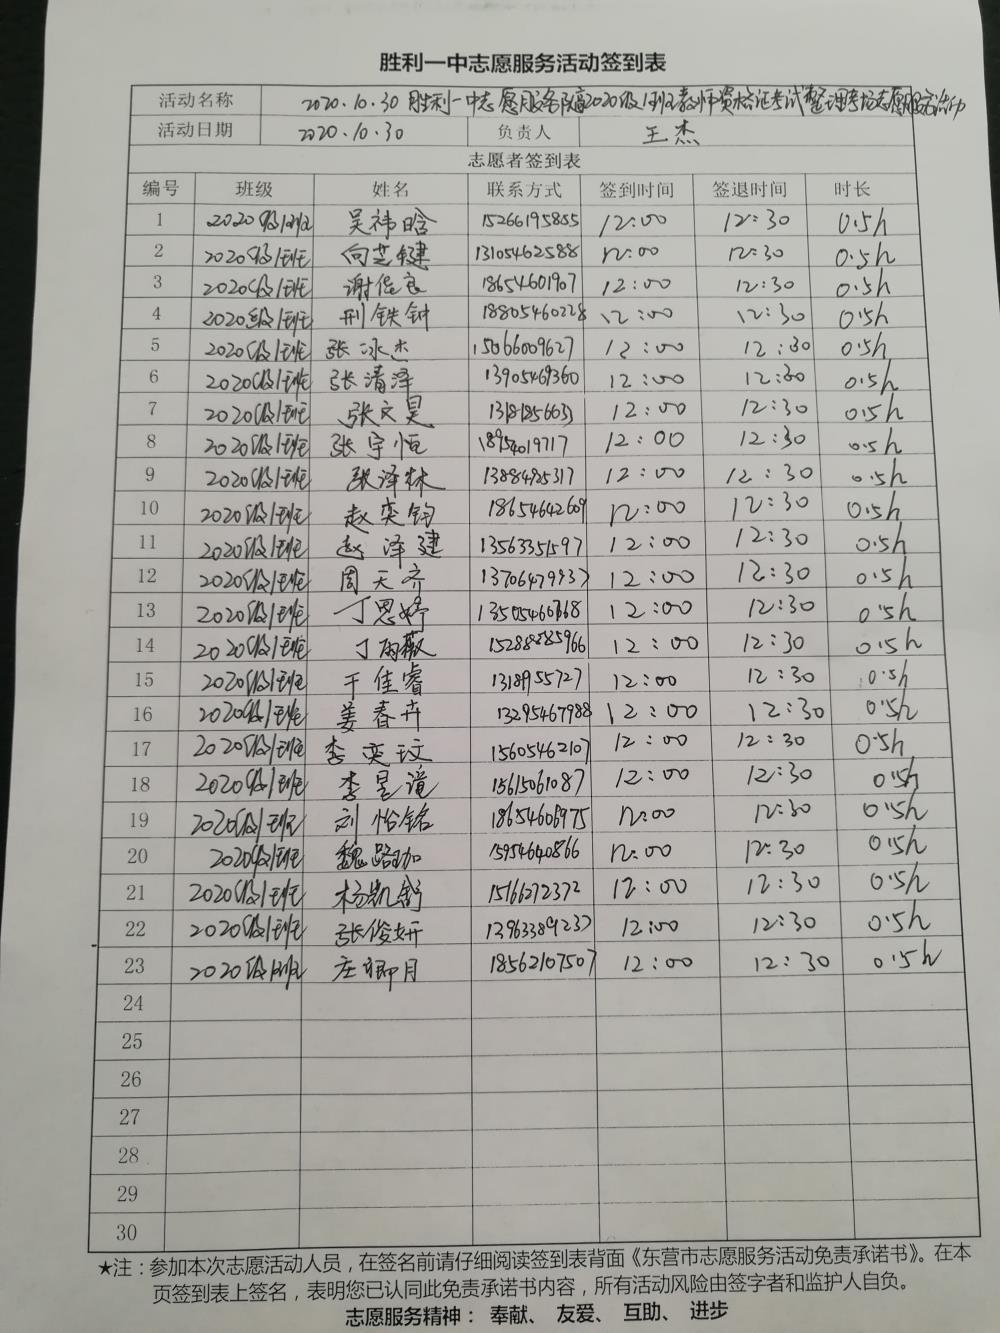 胜利一中志愿服务活动签到表
活动名称 2020.10.30 胜利一中志愿服务队高2020级1班教师资格证考试整理考场志愿服务活动
活动日期 2020.10.30 负责人 王杰
志愿者签到表
编号 班级 姓名 联系方式 签到时间 签退时间 时长
1 2020级1班 吴祎晗 15266195855 12:00 12:30 0.5h
2 2020级1班 向芝键 13105462588 12:00 12:30 0.5h
3 2020级1班 谢侹良 18654601907 12:00 12:30 0.5h
4 2020级1班 刑铁钟 18805460228 12:00 12:30 0.5h
5 2020级1班 张冰杰 15066009627 12:00 12:30 0.5h
6 2020级1班 张清泽 13905469360 12:00 12:30 0.5h
7 2020级1班 张文昊 13181856031 12:00 12:30 0.5h
8 2020级1班 张宇恒 18954019717 12:00 12:30 0.5h
9 2020级1班 张泽林 13884925317 12:00 12:30 0.5h
10 2020级1班 赵奕钧 18654642609 12:00 12:30 0.5h
11 2020级1班 赵泽建 13563351597 12:00 12:30 0.5h
12 2020级1班 周天齐 12:00 12:30 0.5h
13 2020级1班 丁思婷 12:00 12:30 0.5h
14 2020级1班 丁雨薇 15288885966 12:00 12:30 0.5h
15 2020级1班 于佳睿 1318955727 12:00 12:30 0.5h
16 2020级1班 姜春卉 13295467988 12:00 12:30 0.5h
17 2020级1班 李奕玟 15605462107 12:00 12:30 0.5h
18 2020级1班 李昱潼 15615061087 12:00 12:30 0.5h
19 2020级1班 刘怡铭 18654606975 12:00 12:30 0.5h
20 2020级1班 魏路珈 15954640866 12:00 12:30 0.5h
21 2020级1班 杨凯舒 1516272372 12:00 12:30 0.5h
22 2020级1班 张俊妍 13963389237 12:00 12:30 0.5h
23 2020级1班 庄卿月 18562107507 12:00 12:30 0.5h
24
25
26
27
28
29
30
★注：参加本次志愿活动人员，在签名前请仔细阅读签到表背面《东营市志愿服务活动免责承诺书》。在本
页签到表上签名，表明您已认同此免责承诺书内容，所有活动风险由签字者和监护人自负。
志愿服务精神： 奉献、 友爱、 互助、 进步